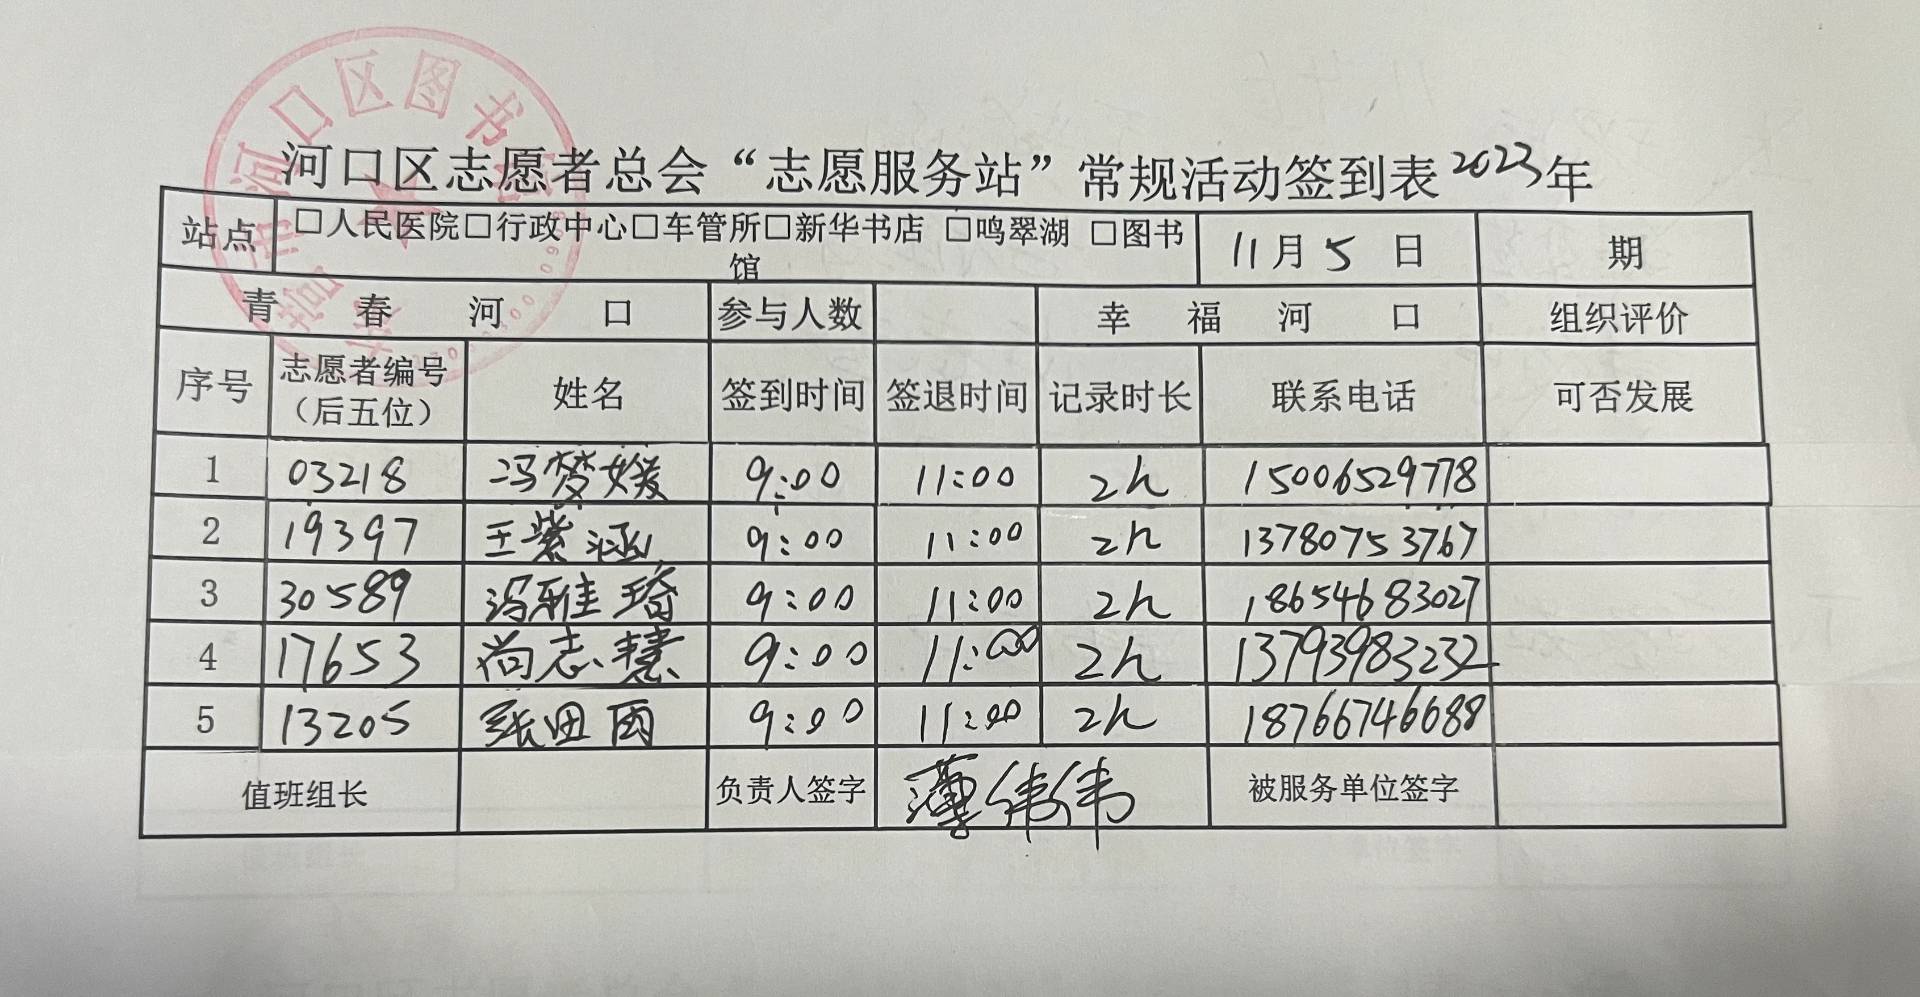 河口区图书
河口区志愿者总会“志愿服务站”常规活动签到表2023年
站点 □人民医院□行政中心□车管所□新华书店 □鸣翠湖 □图书馆 11月5日 期
青春河口 参与人数 幸福河口 组织评价
序号 志愿者编号（后五位） 姓名 签到时间 签退时间 记录时长 联系电话 可否发展
1 03218 冯梦媛 9:00 11:00 2h 15006529778
2 19397 王紫涵 9:00 11:00 2h 13780753767
3 30589 冯雅琦 9:00 11:00 2h 18654683027
4 17653 尚志慧 9:00 11:00 2h 13793983232
5 13205 张田雨 9:00 11:00 2h 18766746688
值班组长 负责人签字 薄伟伟 被服务单位签字